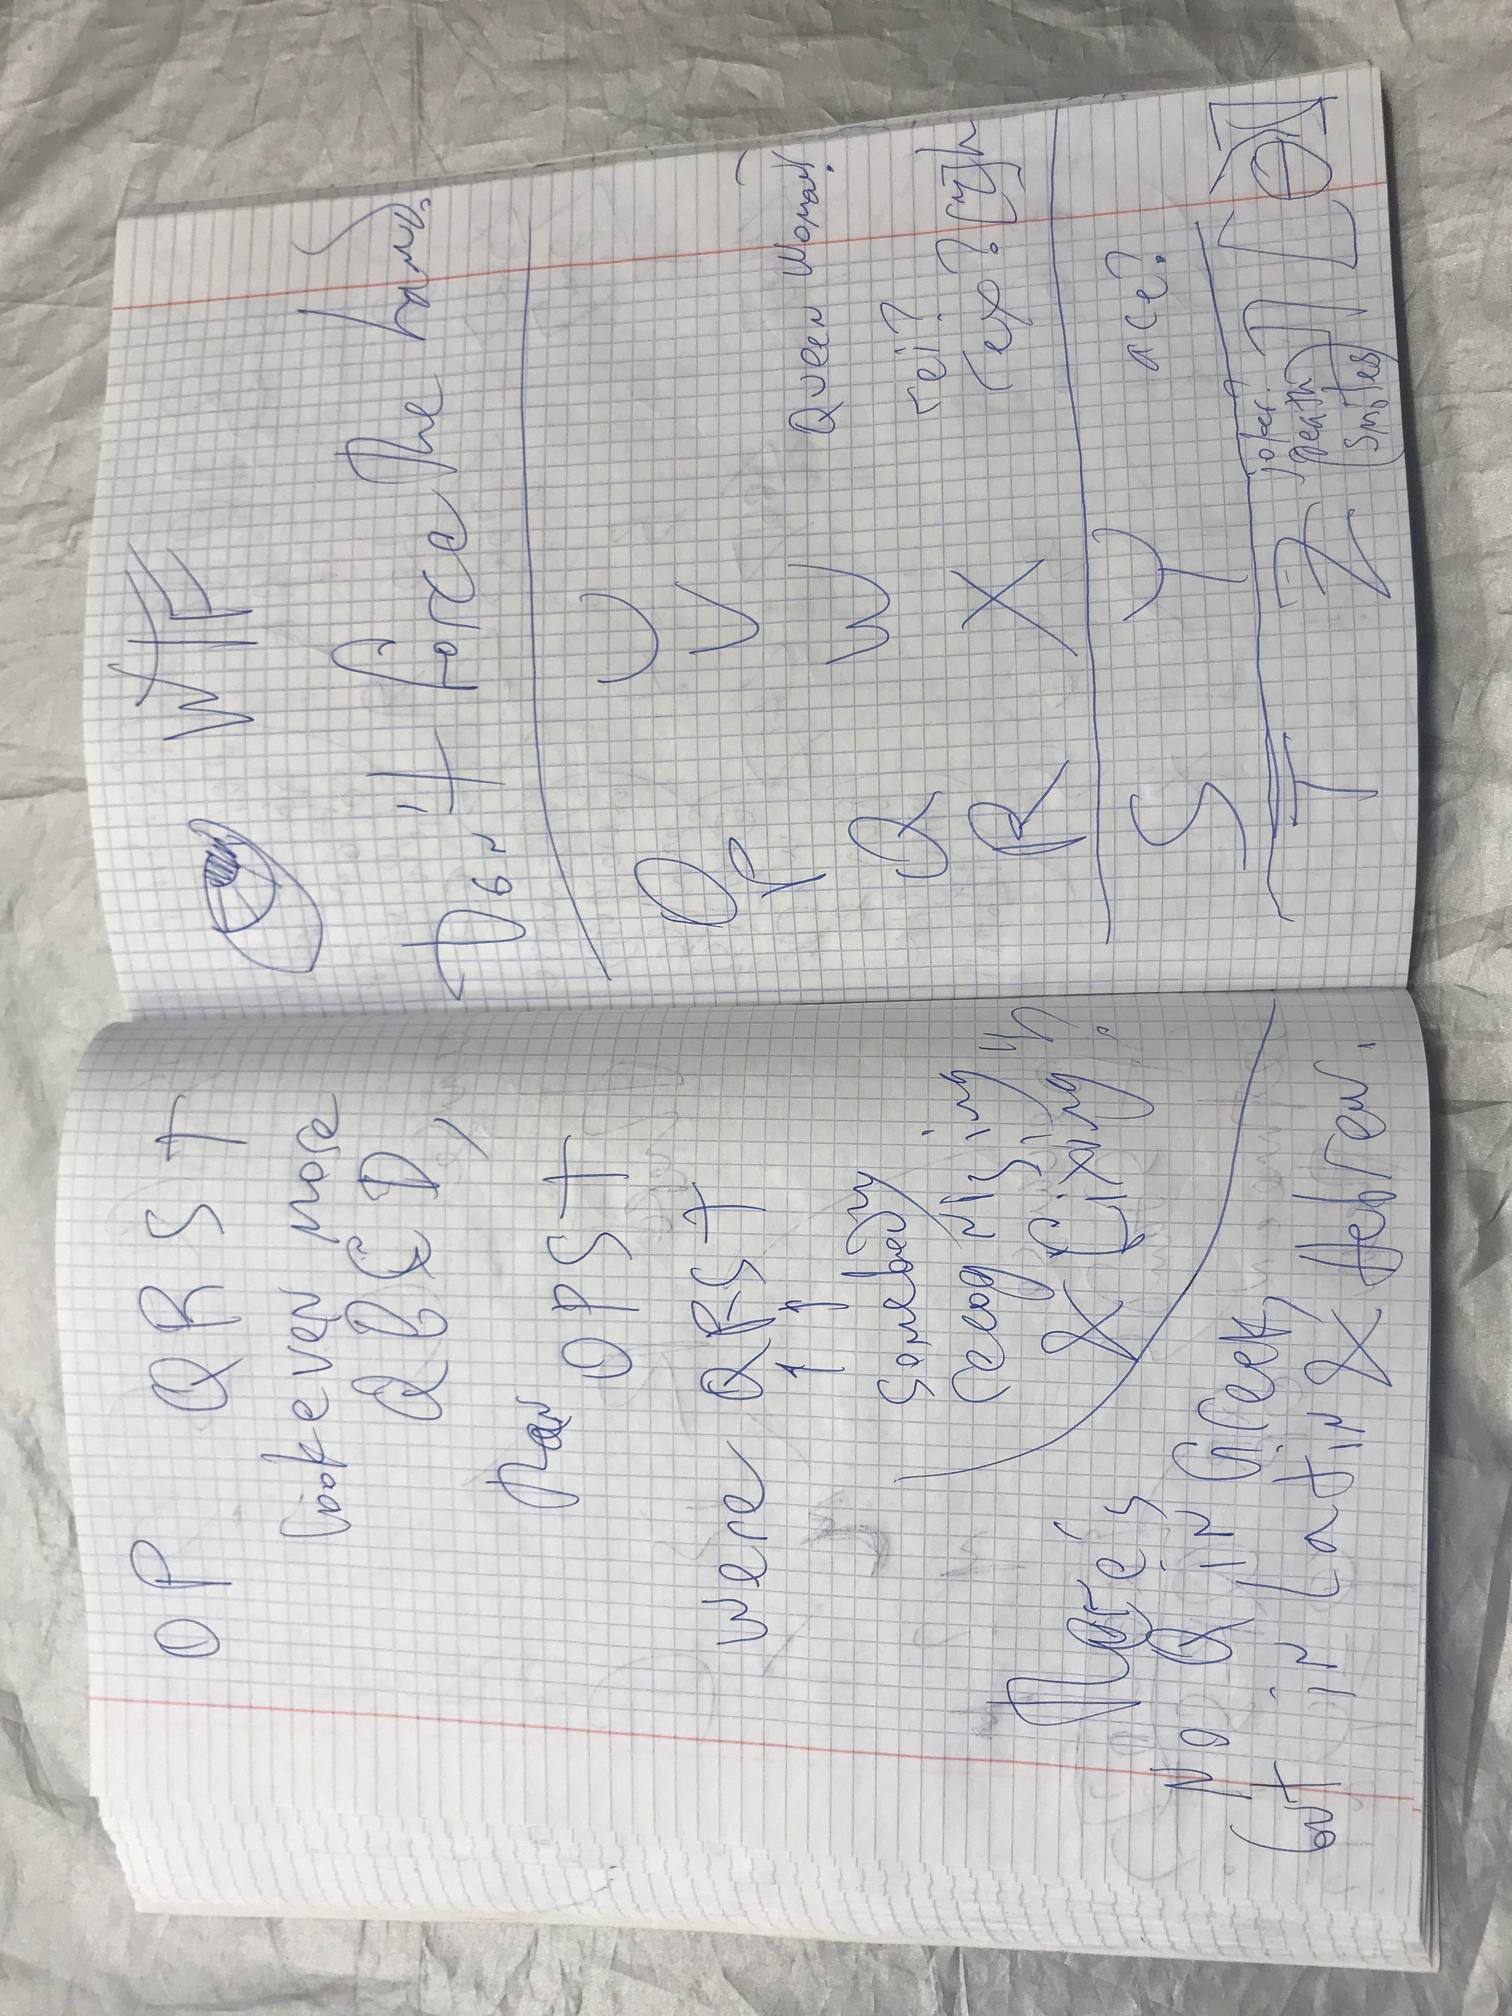 OP QRST
look even more
QBCD,
than
OPST
were QRST
somebody
recognising
& fixing
there's
no Q in Greek,
but in Latin & Hebrew.
WTF
Don't force the hand.
O U
P V
Q W Queen Woman!
rei?
R X rex?
S Y ace?
T Z joker?
death
smiles